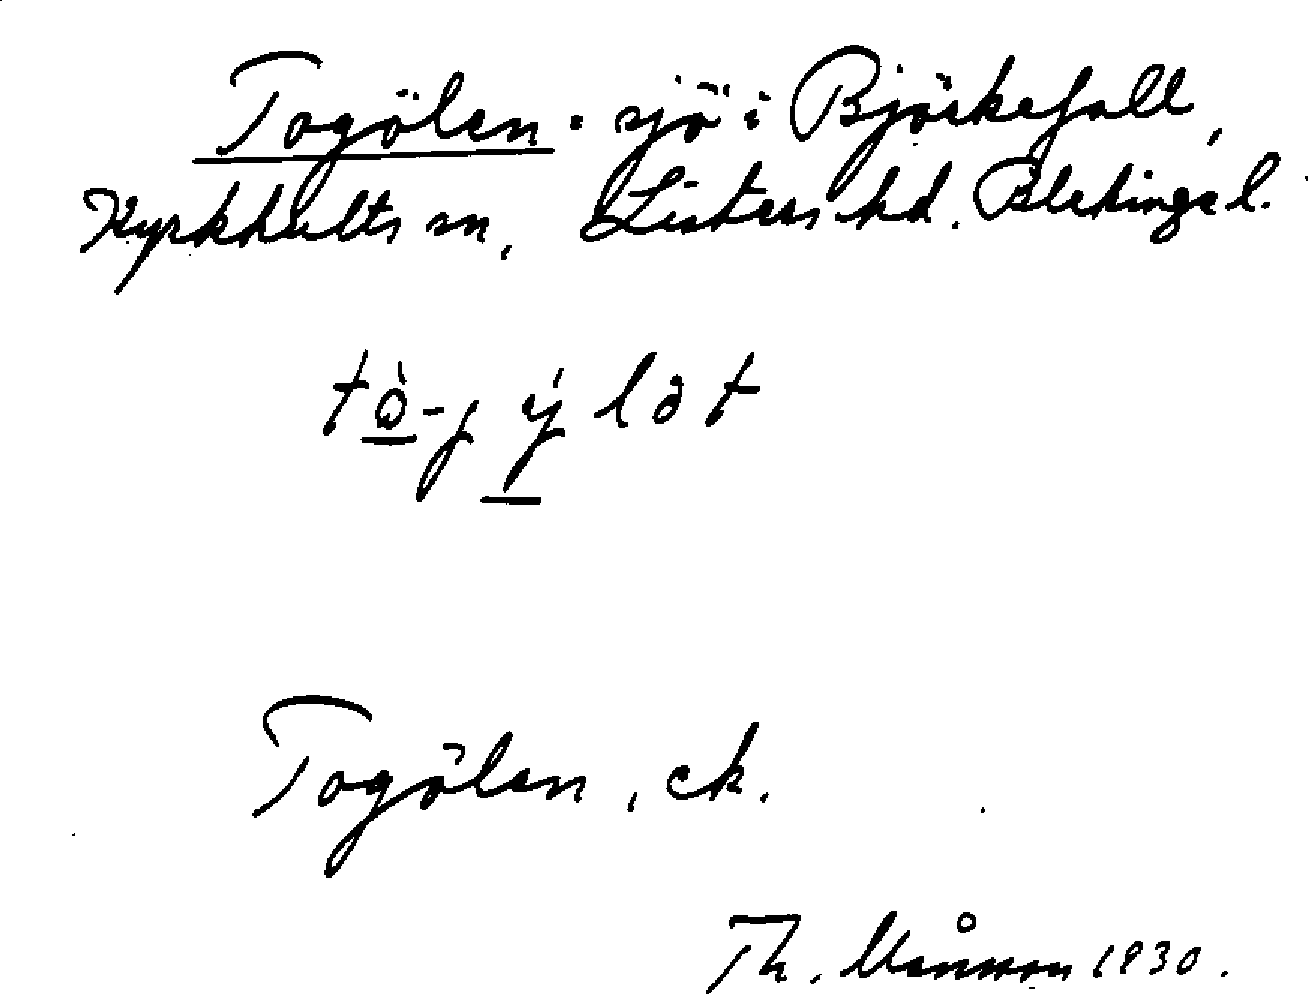 Togölen. sjö i Björkefall,
Kyrkhults sn, Listers hd. Blekinge l.
tò̲-j ý̲ lət
Togölen, ek.
Th. Månsson 1930.